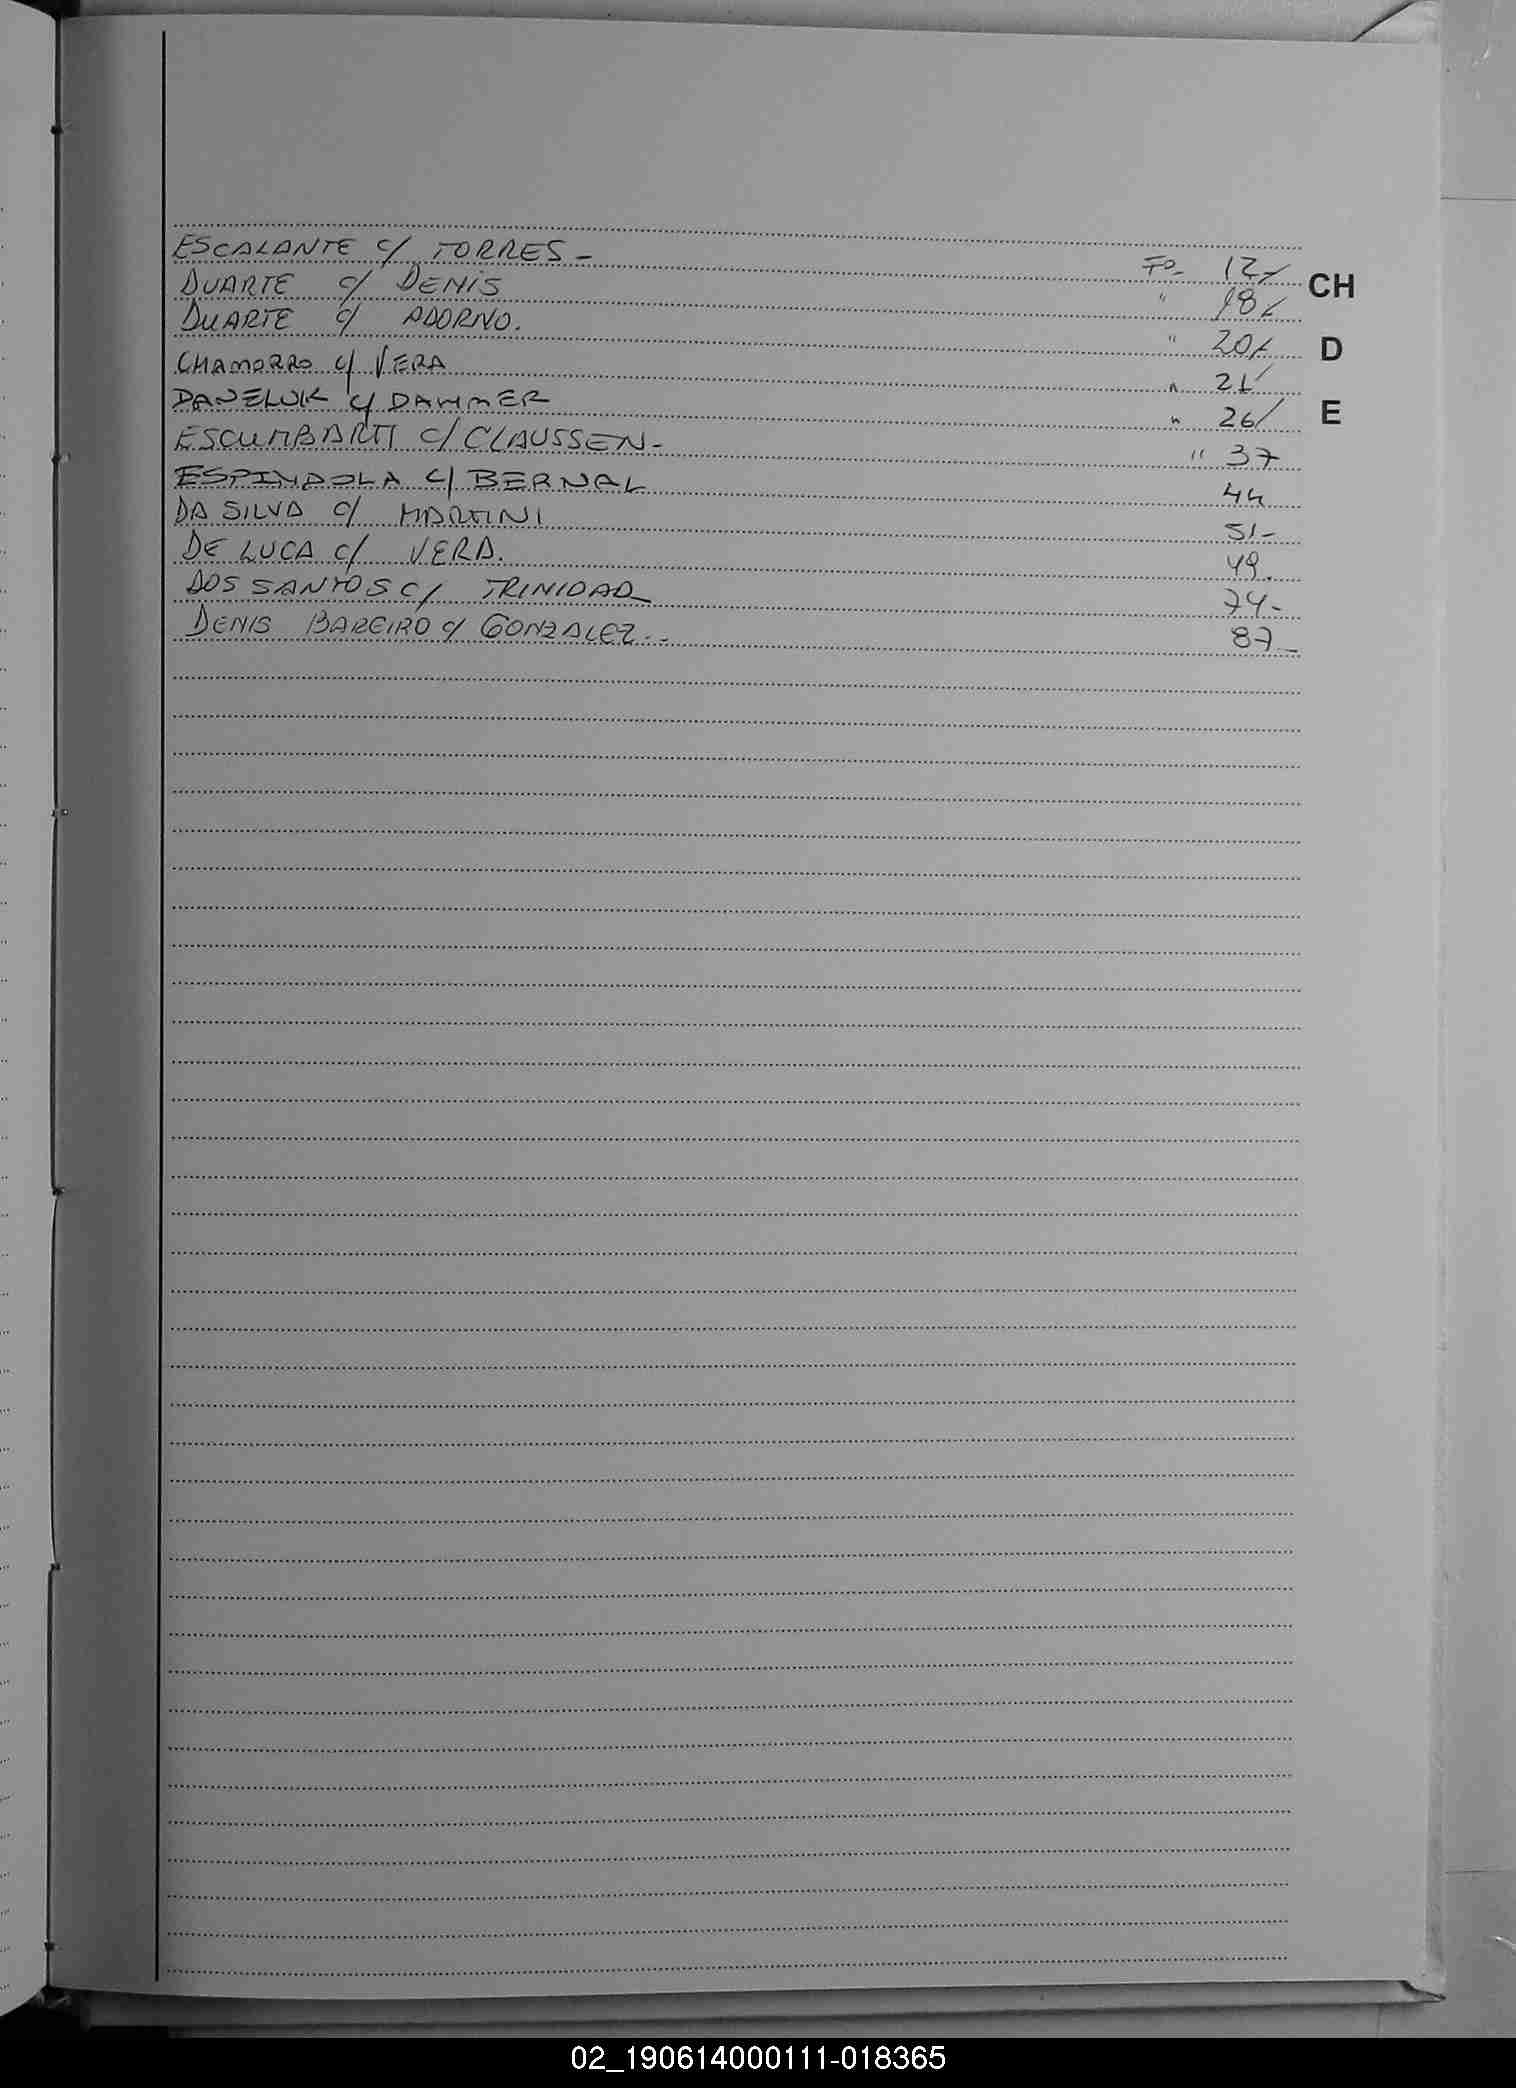 ESCALANTE c/ TORRES - Fo- 12/ CH
DUARTE c/ DENIS " 18/
DUARTE c/ ADORNO. " 20/ D
CHAMORRO c/ VERA " 21/
DANELUK c/ DAMMER " 26/ E
ESCUMBARTI c/ CLAUSSEN- " 37
ESPINDOLA c/ BERNAL 44
DA SILVA c/ MARTINI 51-
DE LUCA c/ VERA. 49.
DOS SANTOS c/ TRINIDAD 74-
DENIS BAREIRO c/ GONZALEZ.- 87-
02_190614000111-018365